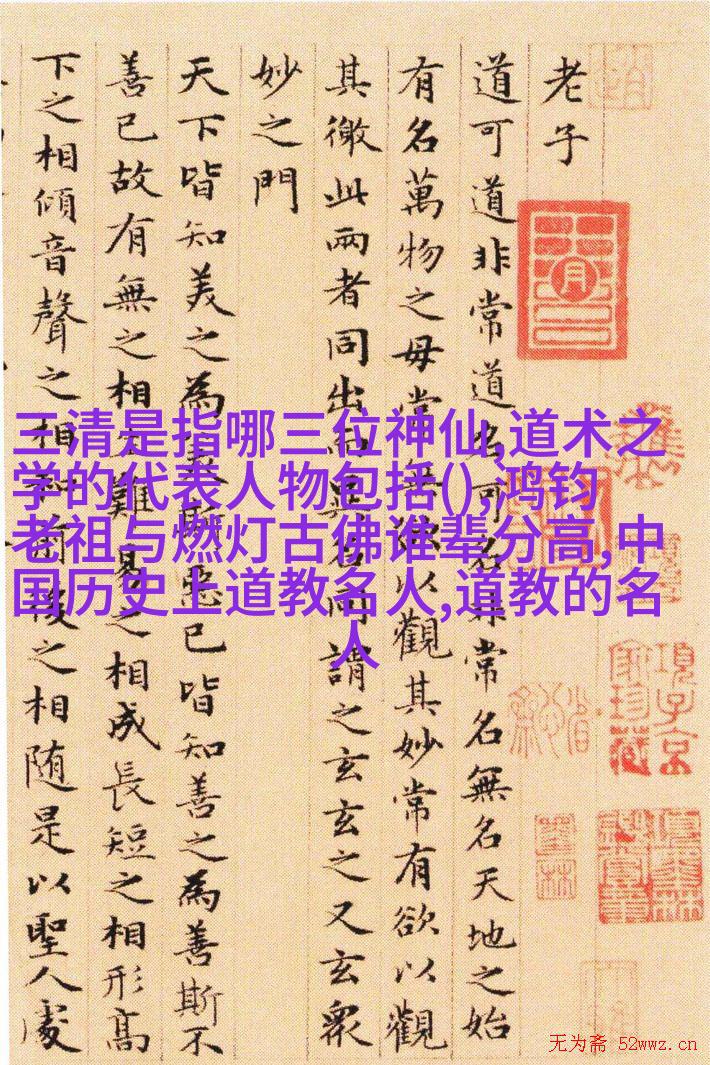 老子
道可道非常道名可名非常名無名天地之始
有名萬物之母常無欲以觀其妙常有欲以觀
其徼此兩者同出而異名同謂之玄玄之又玄衆
妙之門
天下皆知美之為美斯惡已皆知善之為善斯不
善已故有無之相生難易之相成長短之相形高
下之相傾音聲之相和前後之相随是以聖人處
三清是指哪三位神仙,道术之
学的代表人物包括(),鸿钧
老祖与燃灯古佛谁辈分高,中
国历史上道教名人,道教的名
人
項子京
家珍藏
无为斋 52wwz.cn